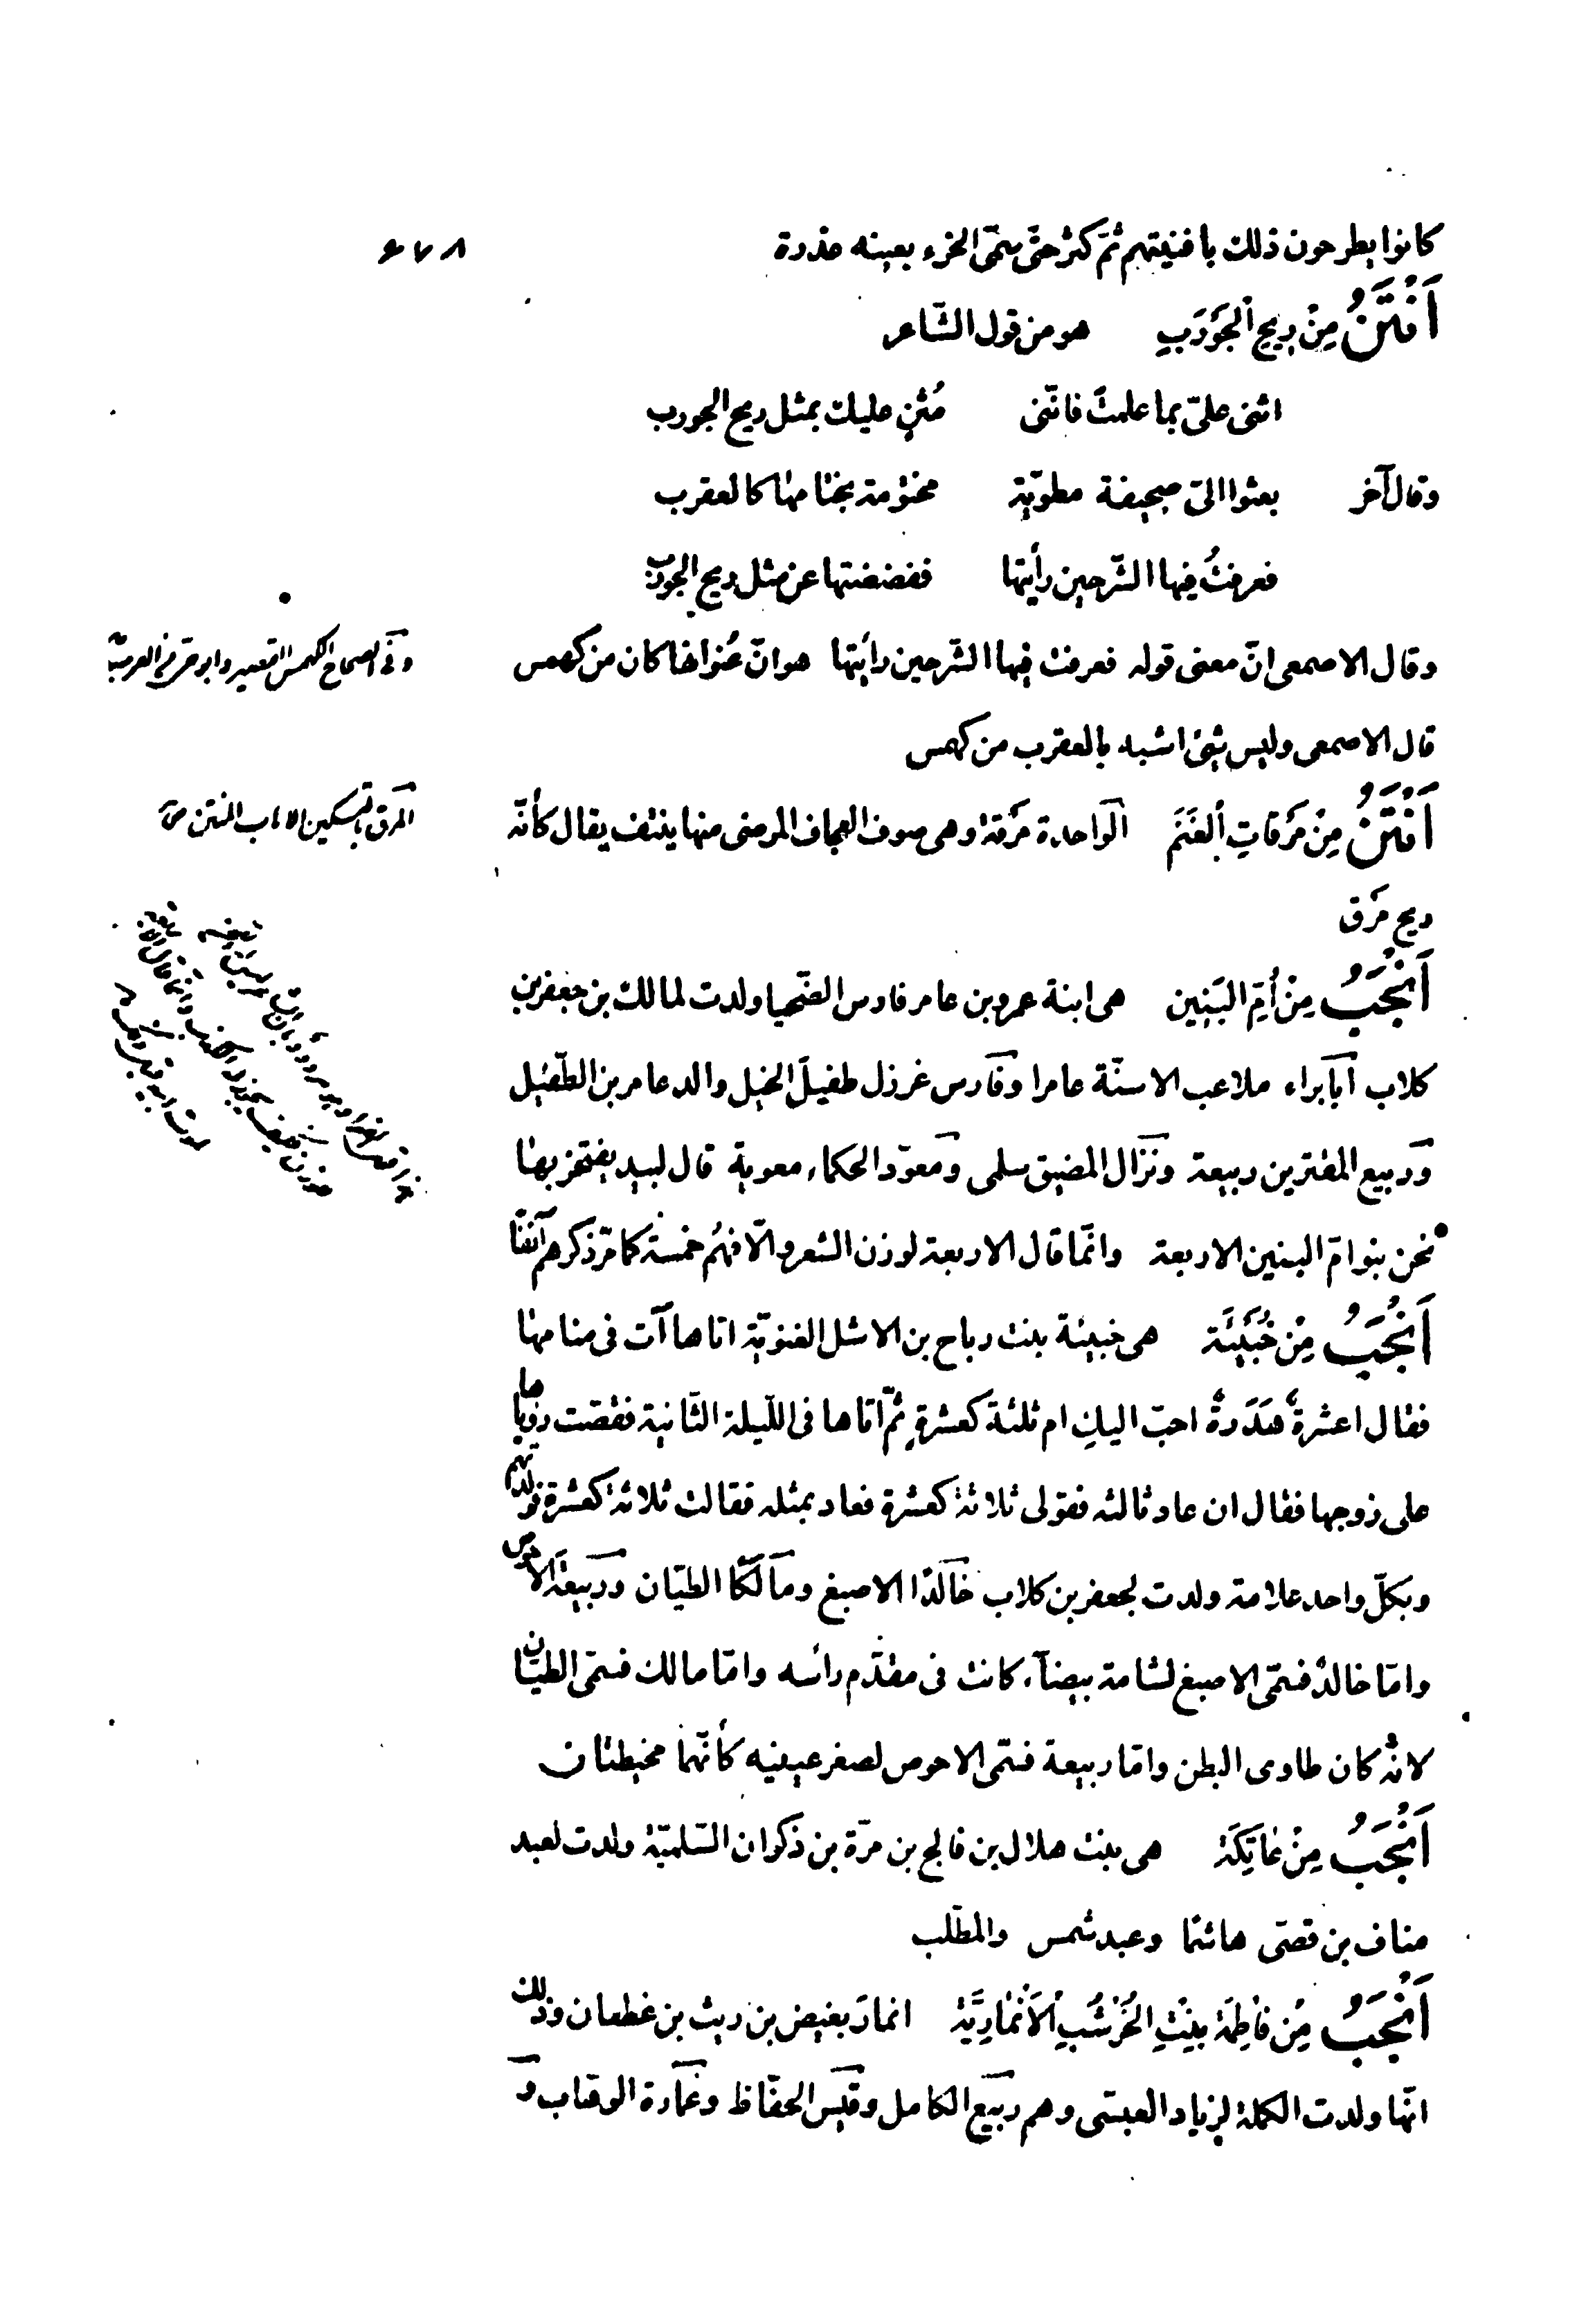 كانوا يطرحون ذلك بافنيتهم ثمّ كثر حتّى سمّى الخرء بعينه عذرة
٦٧٨
اَنْتَنُ مِنْ رِيحِ اْلجَوْرَبِ هو من قول الشّاعر
اثنى علىّ بما علمتُ فانّنى مُثنٍ عليك بمثل ريح الجورب
وقال آخر بعثوا الىّ صحيفة مطويّة مختومة بختامها كالعقرب
فعرفتُ فيها الشّر حين رأيتها ففضضتها عن مثل ريح الجورب
وقال الاصمعى انّ معنى قوله فعرفت فيها الشّر حين رأيتها هو انّ عُنوانها كان من كهمس
وفى الصحاح الكهمس القصير وابو حىّ من العرب
قال الاصمعى وليس شئ اشبه بالعقرب من كهمس
اَنْتَنُ مِنْ مَرَقاتِ اْلغَنَمَ الواحدة مَرقة وهى صوف العجاف المرضى منها ينتف يقال كأنّه
المرق بالتسكين الاهاب المنتن ص
ريح مَرق
اَنْجَبُ مِنْ اُمِّ البَنِينِ هى ابنة عمرو بن عامر فارس الضّحيا ولدت لمالك بن جعفر بن
كلاب ابا براء ملاعب الاسنّة عامرا وفارس غرزل طفيل الخيل والد عامر بن الطّفيل
وربيع المقترين ربيعة ونزّال المضيق سلمى ومعوّد الحكماء معوية قال لبيد يفتخر بها
نحن بنو امّ البنين الاربعة وانّما قال الاربعة لوزن الشعر والّا فهُم خمسة كما مرّ ذكرهم آنفًا
اَنْجَبُ مِنْ خُبَيئَة هى خبيئة بنت رباح بن الاشل الغنويّة اتاها آت فى منامها
فقال اعشرةٌ هَدَرةٌ احبّ اليكِ ام ثلثة كعشرةٍ ثمّ اتاها فى اللّيلة الثّانية فقصّت رؤياها
على زوجها فقال ان عاد ثالثه فقولى ثلاثة كعشرة فعاد بمثله فقالت ثلاثة كعشرة فولدتهم
وبكلّ واحد علامة ولدت لجعفر بن كلاب خالدًا الاصبغ ومالكًا الطيّان وربيعة الاحوص
وامّا خالدٌ فسمّى الاصبغ لشامة بيضآء كانت فى مقدّم رأسه وامّا مالك فسمّى الطيّان
لانّه كان طاوى البطن وامّا ربيعة فسمّى الاحوص لصغر عينيه كأنّهما مخيطتان
اَنْجَبُ مِنْ عٰاتِكَة هى بنت هلال بن فالج بن مرّة بن ذكوان السّلميّة ولدت لعبد
مناف بن قصىّ هاشمًا وعبد شمس والمطّلب
اَنْجَبُ مِن فاطِمَة بِنْتِ الخُرْشُبِ الْاَنْمٰارِيَّة انمار بغيض بن ريث بن غطفان وذلك
انّها ولدت الكملة لزياد العبسّى وهم ربيع الكامل وقيس الحفّاظ وعمارة الوهّاب و